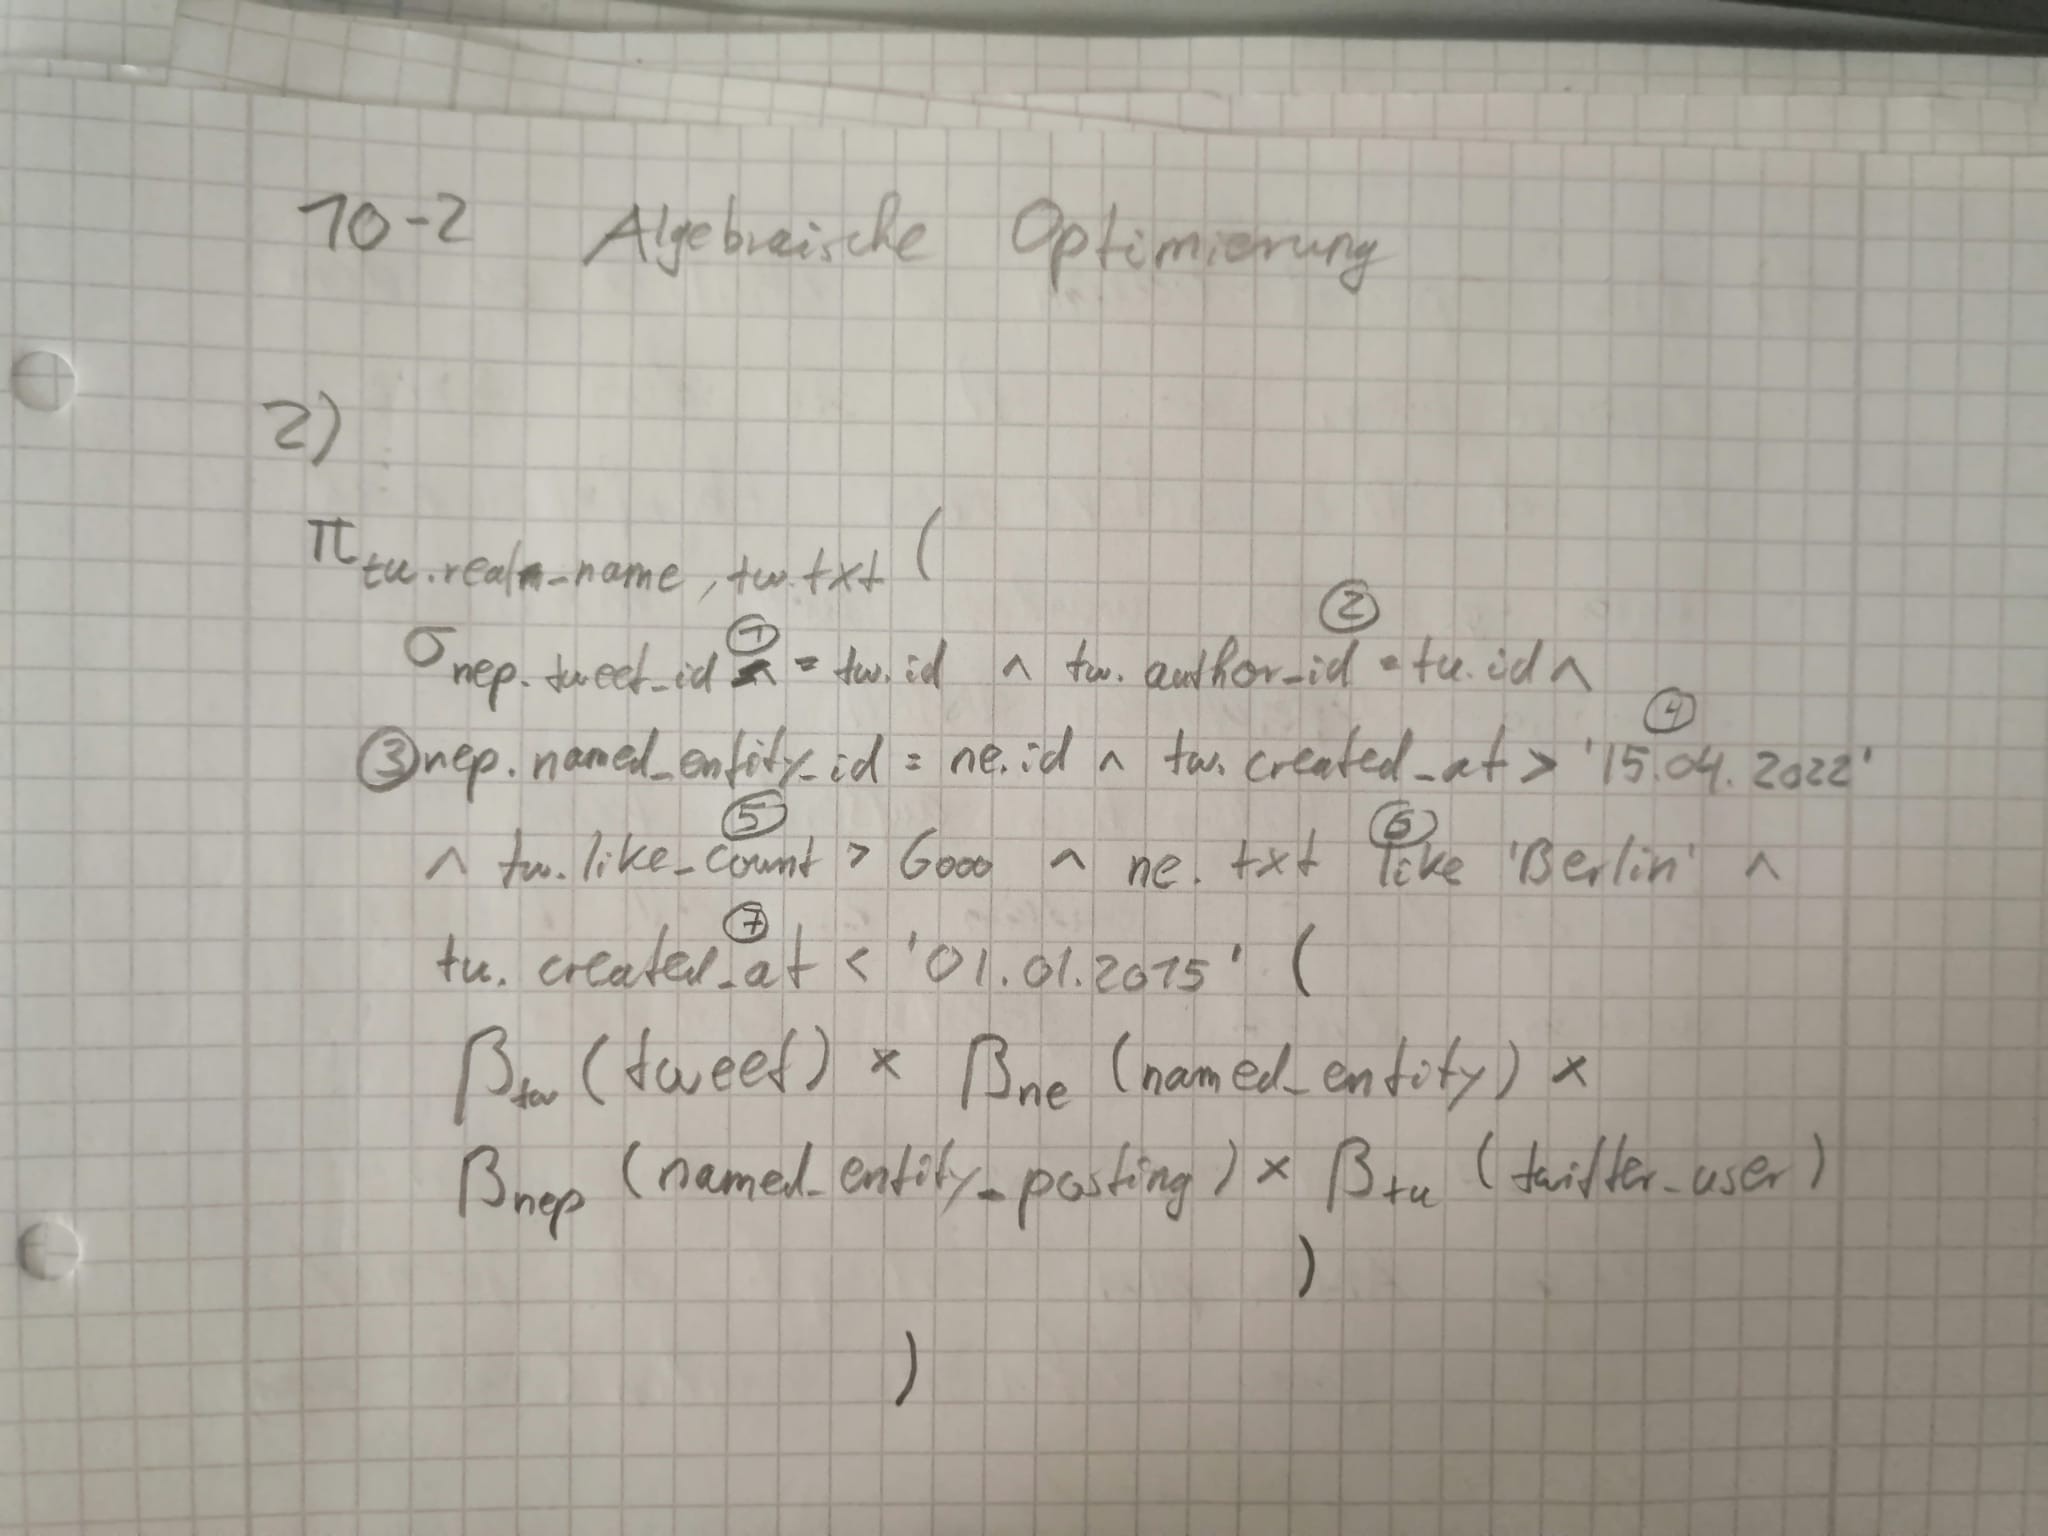 10-2 Algebraische Optimierung
2)
π tu.real_name, tw.txt (
② 
σ nep.tweet_id ① = tw.id ∧ tw.author_id = tu.id ∧
④
③ nep.named_entity_id = ne.id ∧ tw.created_at > '15.04.2022'
⑤ ⑥
∧ tw.like_count > 6000 ∧ ne.txt like 'Berlin' ∧
⑦
tu.created_at < '01.01.2015' (
β tw (tweet) × β ne (named_entity) ×
β nep (named_entity_posting) × β tu (twitter_user)
)
)